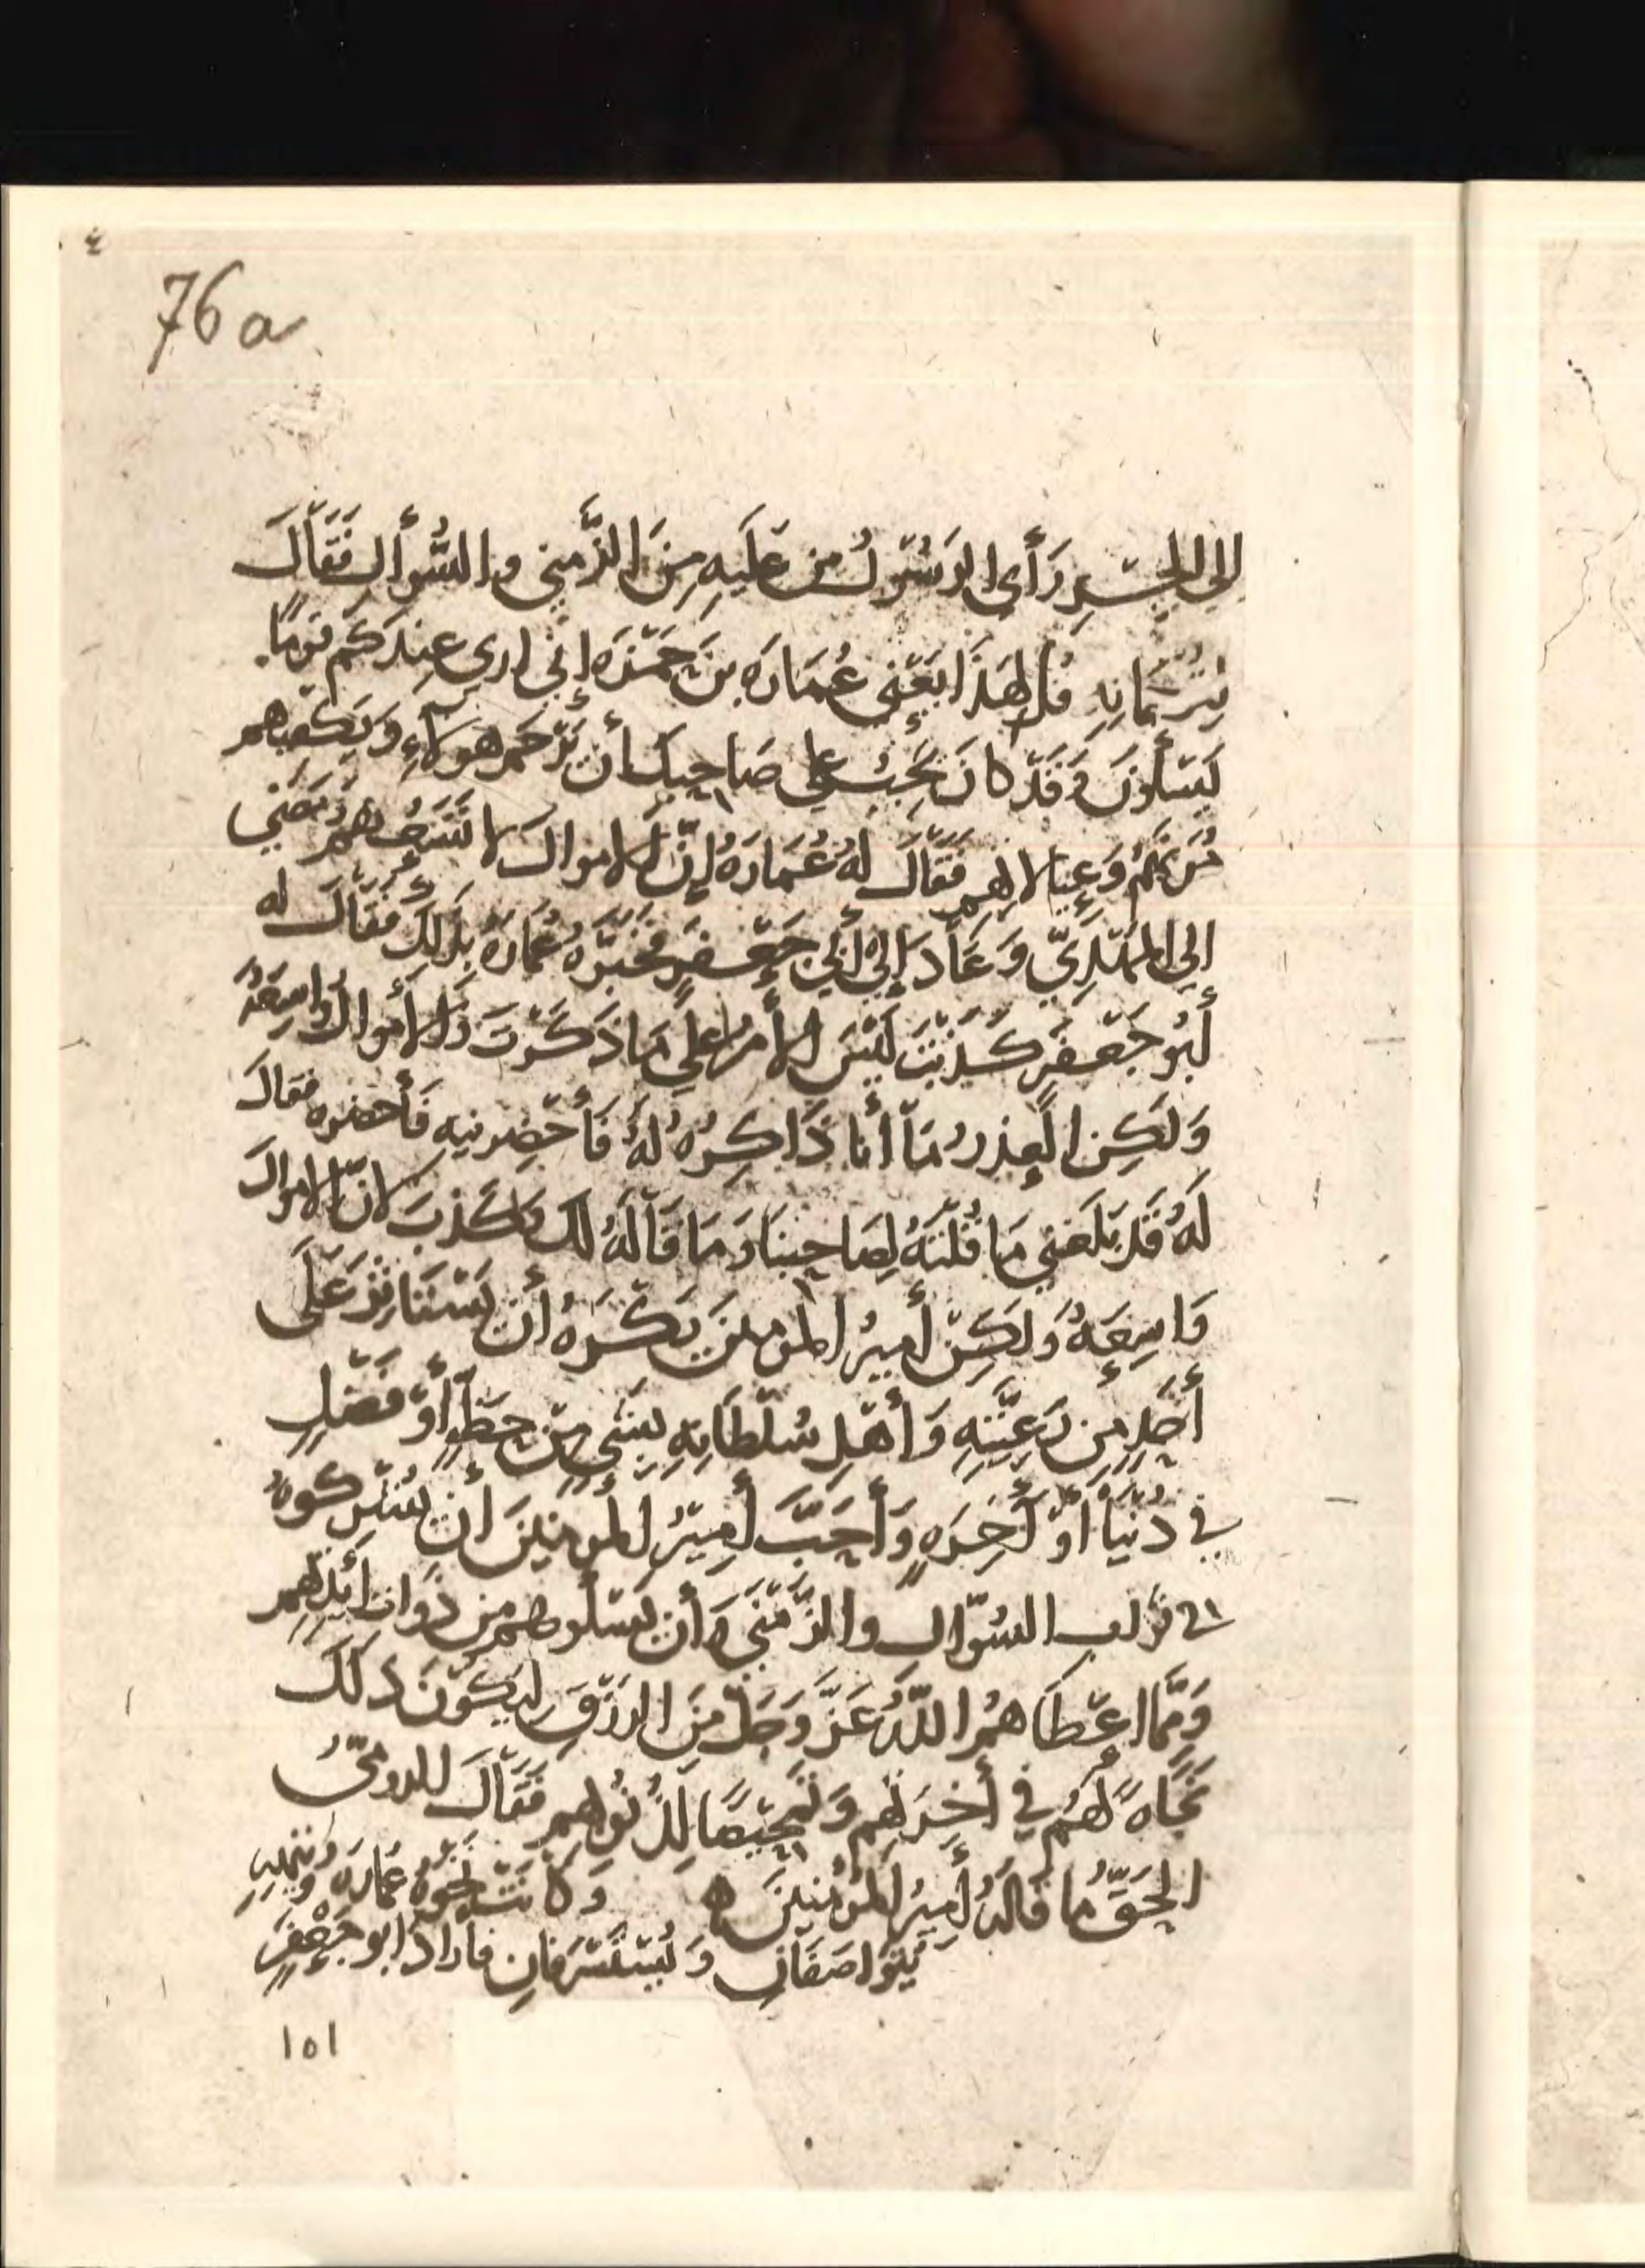 76a
الي الجِسْرِ رَأى الرَسُولُ مَن عَلَيهِ مِنَ الزَّمني والسُّوألِ فَقَالَ
لِتُرْجُمانِهِ قُل لِهَذَا يَعْني عُمَارَه بنَ حَمْزَه إني اري عِندَكُم قَومًا
يَسْألُونَ وَقَدْ كانَ يَجِبُ علي صَاحِبِكَ أن يَرْحَمَ هَولآءِ وَيَكفيهم
مُؤَنَهُمْ وَعِيالاتهم فَقَالَ لهُ عُمَارَهُ إنَّ الاموالَ لا تَسَعُهُم وَمَضَي
الي المَهْدِيّ وَعَادَ إلي أبي جَعْفَرٍ فخَبَّرَهُ عُمَارَهُ بِذَلِكَ فقَالَ له
أبُو جَعْفَرٍ كَذَبْتَ لَيْسَ الأمرُ علي مَا ذَكَرْتَ وَالأموالُ وَاسِعَهٌ
وَلَكِن العُذرُ مَا أنا ذَاكِرُهُ لَهُ فَأحْضِرنيهِ فَأحضره فقالَ
لَهُ قَد بَلَغَني مَا قُلْتَهُ لِصَاحِبِنَا وَمَا قَالَهُ لكَ وَكَذبَ لانّ الاموالَ
وَاسِعَهٌ وَلَكِنّ أمِيرُ المومنينَ يَكْرَهُ أن يَسْتَاثِرَ عَلَى
أحَدٍ مِن رَعِيَّتِهِ وَأهْلِ سُلْطَانِهِ بِشَيءٍ مِن حَظٍّ أوْ فَضْلٍ
في دُنْيَا أوْ آخِرَهٍ وَأحَبَّ أمِيرُ المومنينَ أن يُشْرِكُوهُ
في ثَوابِ السُؤالِ والزَّمْنَي وَأن يَسْألُوهم مِن ذَواتِ أيْدِيهِم
وَمِمَّا اعْطَاهُمُ اللَّهُ عَزَّ وَجَلّ مِنَ الرِزْقِ لِيَكُونَ ذلكَ
نَجَاهً لَهُم في آخِرَتِهِم وَتَمْحيصًا لِذُنُوبِهِم فقَالَ الروميُّ
الحَقُّ مَا قَالَهُ أمِيرُ المُؤْمِنِينَ ه وَكَانَت نخْوَهُ عمَارَه وَتيْهِهِ
يُتَواصَفَانِ وَيُسْتَسْرَفَانِ فارادَ ابو جَعْفَرٍ
١٥١